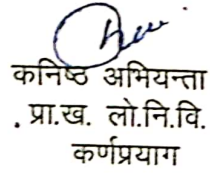 कनिष्ठ अभियन्ता
प्रा.ख. लो.नि.वि.
कर्णप्रयाग